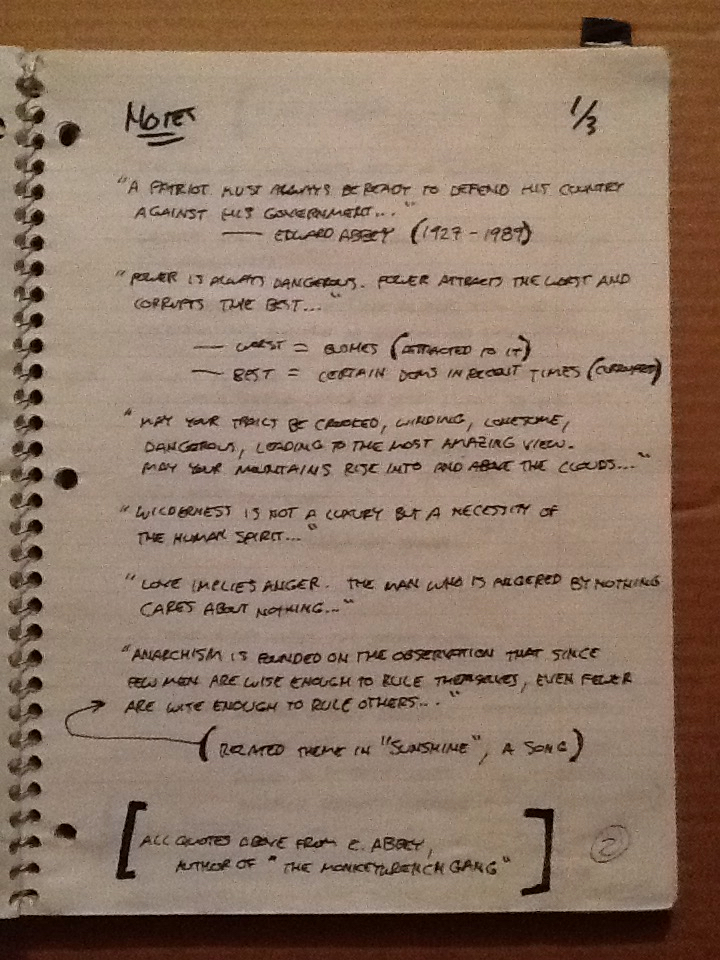 NOTES
1/3
"A PATRIOT MUST ALWAYS BE READY TO DEFEND HIS COUNTRY
AGAINST HIS GOVERNMENT..."
— EDWARD ABBEY (1927-1989)
"POWER IS ALWAYS DANGEROUS. POWER ATTRACTS THE WORST AND
CORRUPTS THE BEST..."
— WORST = (ATTRACTED TO IT)
— BEST = CERTAIN DEMS IN RECENT TIMES (CORRUPTED)
"MAY YOUR TRAILS BE CROOKED, WINDING, LONESOME,
DANGEROUS, LEADING TO THE MOST AMAZING VIEW.
MAY YOUR MOUNTAINS RISE INTO AND ABOVE THE CLOUDS..."
"WILDERNESS IS NOT A LUXURY BUT A NECESSITY OF
THE HUMAN SPIRIT..."
"LOVE IMPLIES ANGER. THE MAN WHO IS ANGERED BY NOTHING
CARES ABOUT NOTHING..."
"ANARCHISM IS FOUNDED ON THE OBSERVATION THAT SINCE
FEW MEN ARE WISE ENOUGH TO RULE THEMSELVES, EVEN FEWER
ARE WISE ENOUGH TO RULE OTHERS..."
(RELATED THEME IN "SUNSHINE", A SONG)
[ALL QUOTES ABOVE FROM E. ABBEY,
AUTHOR OF "THE MONKEYWRENCH GANG"]
2